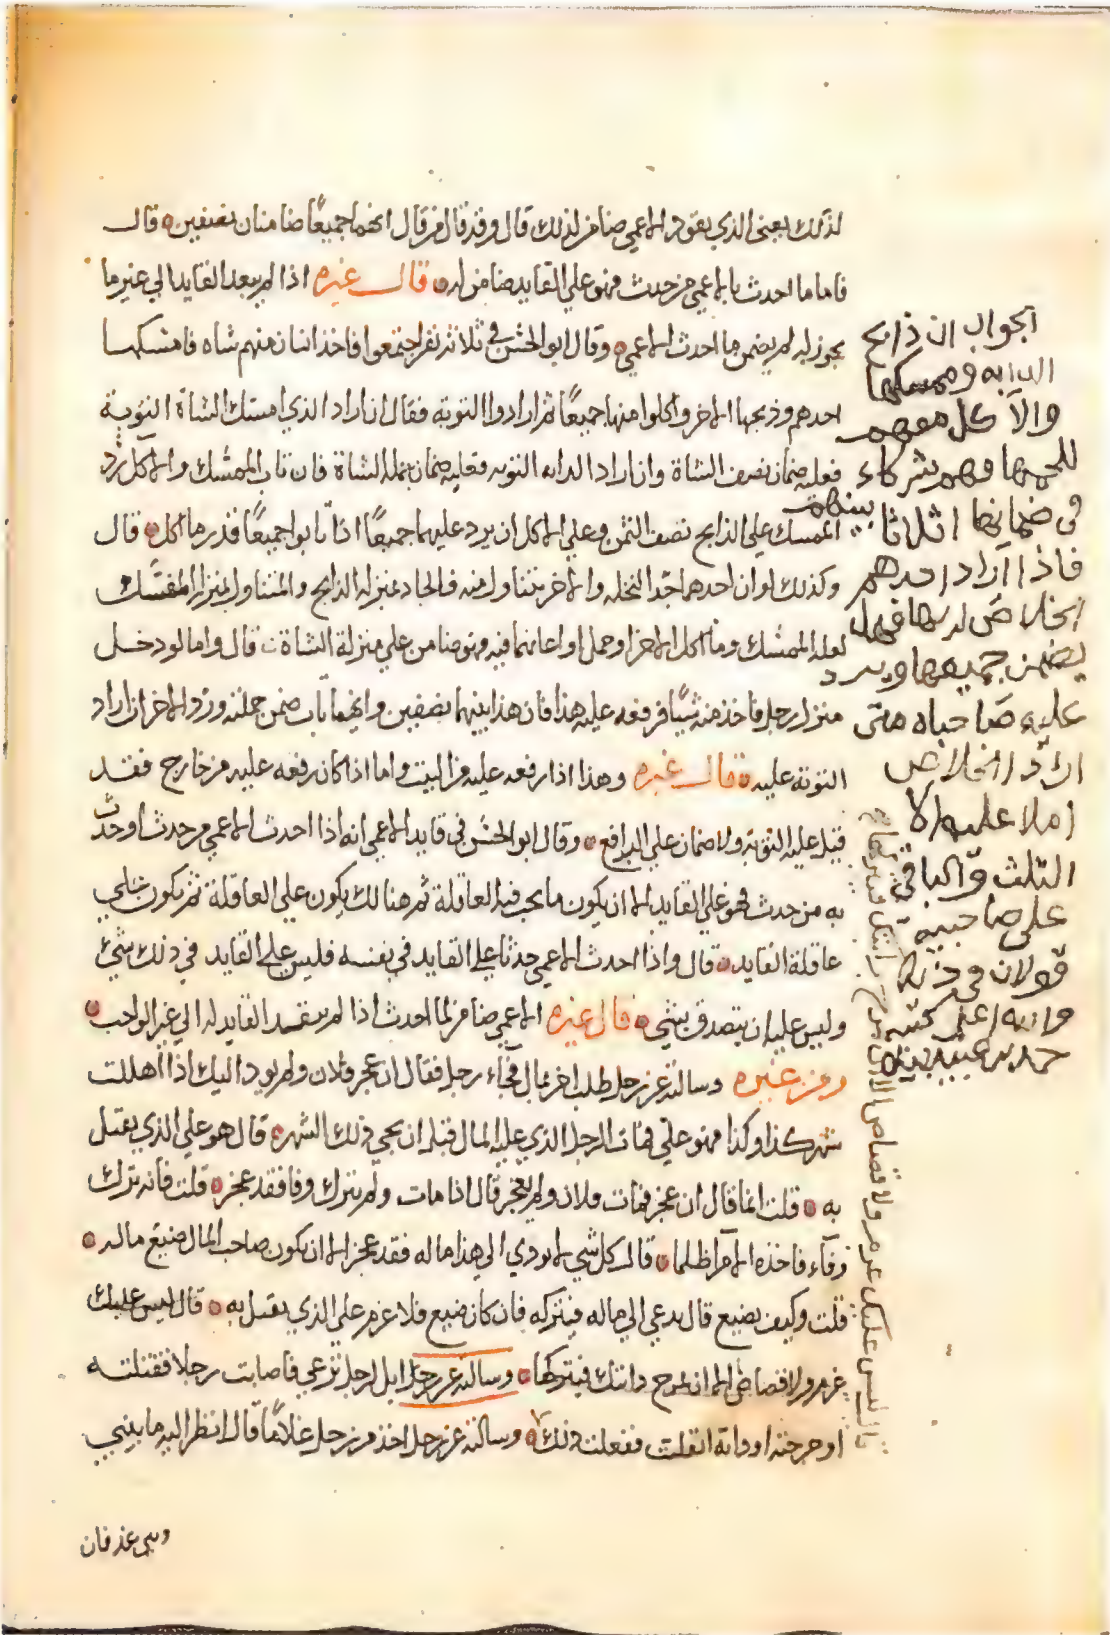 لذلك يعني الذي يقود الاعمى ضامن لذلك قال وقد قال من قال انهما جميعًا ضامنان نصفين ه قال
فاما ما احدث بالاعمى من حدث فهو على القايد ضامن له ه قال غيره اذا لم يعد القايد الى غير ما
يجوز له لم يضمن ما احدث الاعمى ه وقال ابو الحسن في ثلاثة نفر اجتمعوا فاخذ اثنان منهم شاه فامسكها
احدهم وذبحها الاخر واكلوا منها جميعًا ثم ارادوا التوبة فقال ان اراد الذي امسك الشاة التوبة
فعليه ضمان نصف الشاة وان اراد الذابه التوبه فعليه ضمان جمله الشاة فان تاب الممسك والاكل رد
الممسك على الذابح نصف الثمن وعلى الاكل ان يرد عليهما جميعًا اذا تابوا جميعًا قدر ما اكل ه قال
وكذلك لو ان احدهما جدّ النخله والاخر يتناول منه فالجاد بمنزله الذابح والمتناول بمنزلة الممسك
لعله الممسك وما اكل الاخر او حمل او اعانهما فيه فهو ضامن على منزلة الشاة قال واما لو دخل
منزل رجل فاخذ منه شيًا فرفعه عليه هذا فان هذا بينهما نصفين وايهما تاب ضمن جملته ورد الاخر ان اراد
التوبة عليه ه قال غيره وهذا اذا رفعه عليه من البيت واما اذا كان رفعه عليه من خارج فقد
قيل عليه التوبة ولا ضمان على الرافع ه وقال ابو الحسن في قايد الاعمى انه اذا احدث الاعمى من حدث او حدث
به من حدث فهو على القايد الا ان يكون ما يجب فيه العاقلة ثم هنالك يكون على العاقلة ثم يكون على
عاقلة القايد ه قال واذا احدث الاعمى حدثا على القايد في نفسه فليس على القايد في ذلك شي
وليس عليه ان يتصدق بشي ه قال غيره الاعمى ضامن لما احدث اذا لم يقصد القايد له الى غير الواجب ه
ومن غيره وسالته عن رجل طلب اغر بمال فجاء رجل فقال ان عجز فلان ولم يود اليك اذا اهللت
شهر كذا وكذا فهو علي فمات الرجل الذي عليه المال قبل ان يجي ذلك الشهر ه قال هو على الذي يقبل
به ه قلت انما قال ان عجز فمات فلان ولم يعجز قال اذا مات ولم يترك وفا فقد عجز ه قلت فانه ترك
وفآء فاخذه الامرا ظلما ه قال كل شي لا يودي الى هذا ماله فقد عجز الا ان يكون صاحب المال ضيع ماله ه
قلت وكيف يضيع قال يدعى الى ماله فيتركه فان كان ضيع فلا غرم على الذي يقبل به ه قال ليس عليك
غرم ولا قصاص الا ان تسرح دابتك فيتركها ه وسالته عن رجل ابل لرجل ترعى فاصابت رجلا فقتلته
او جرحته او دابه انفلتت ففعلت ذلك ه وسالته عن رجل اخذ من رجل غلامًا قال انظر اليه ما بيني
وبين
الجواب ان ذابح
الدابه وممسكها
والآكل معهم
للحمها فهم شركاء
في ضمانها اثلاثا بينهم
فاذا اراد احدهم
الخلاص لربها فهل
يضمن جميعها ويرد
عليه صاحباه متى
اراد الخلاص
ام لا عليه الا
الثلث والباقي
على صاحبيه
قولان في ذلك
والله اعلم كتبه
حمد بن عبيد بيده
قال ليس عليك غرم ولا قصاص الا ان تسرح دابتك